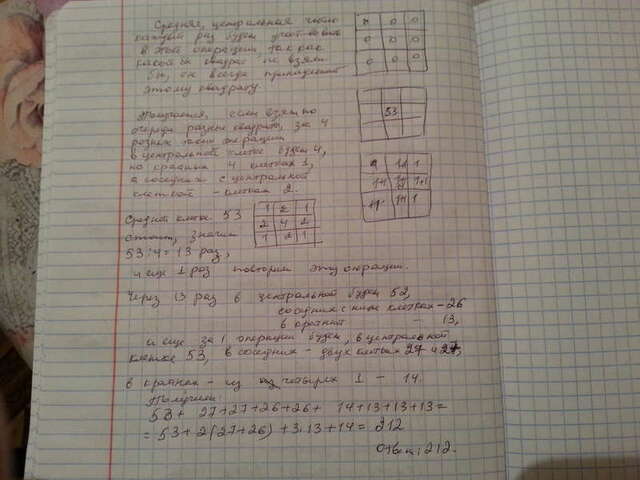 Средняя, центральная число
каждый раз будет участвовать
в этой операции, так как
какой квадрат не взяли
бы, он всегда принадлежит
этому квадрату
0 0
0 0 0
0 0 0
53
если взять по
очереди разные квадраты, за 4
разных таких операции
в центральной клетке будет 4,
на крайних 4 клетках 1,
а соседних с центральной
клеткой - клетках 2.
1 1+1 1
1+1 1+1
1+1 1
Средней клетке 53
стоит, значит
53:4=13 раз,
1 2 1
2 4 2
1 2 1
и еще 1 раз повторим эту операцию.
Через 13 раз в центральной будет 52,
соседних с ними клетках - 26
в крайних - 13,
и еще за 1 операцию будет, в центральной
клетке 53, в соседних - двух клетках 27 и 27,
в крайних - из четырех 1 - 14.
Получим:
53 + 27+27+26+26+ 14+13+13+13=
= 53+2(27+26)+3·13+14= 212
Ответ: 212.